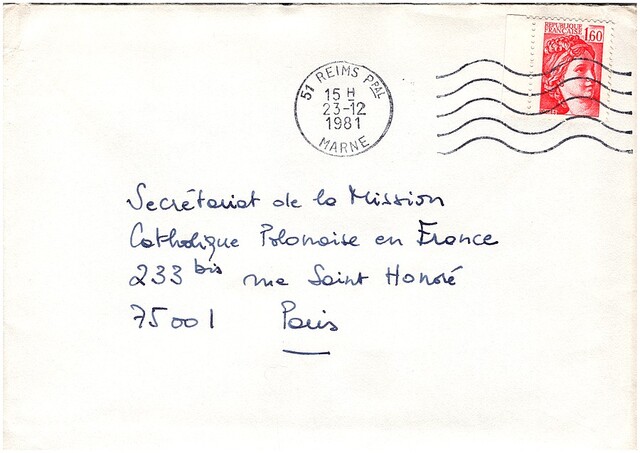 REPUBLIQUE
FRANÇAISE
1,60
51 REIMS PPAL
15 H
23-12
1981
MARNE
Secrétariat de la Mission
Catholique Polonaise en France
233 bis rue Saint Honoré
75001 Paris